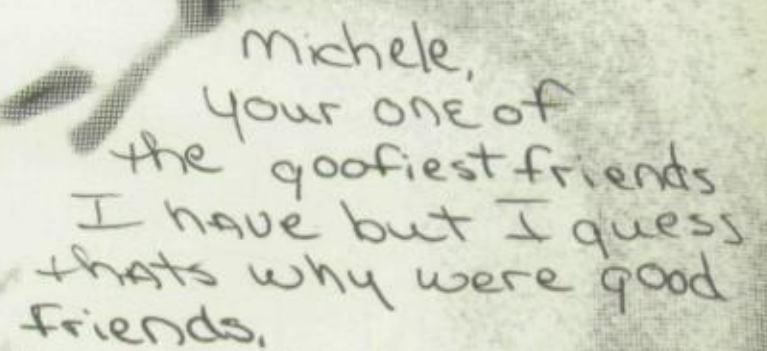 Michele,
your one of
the goofiest friends
I have but I guess
thats why were good
friends.